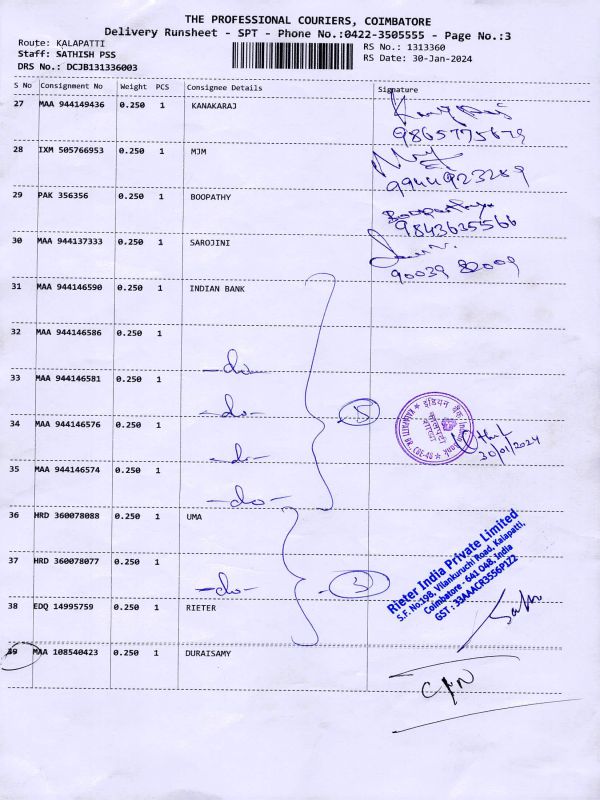 THE PROFESSIONAL COURIERS, COIMBATORE
Delivery Runsheet - SPT - Phone No.:0422-3505555 - Page No.:3
Route: KALAPATTI RS No.: 1313360
Staff: SATHISH PSS RS Date: 30-Jan-2024
DRS No.: DCJB131336003
S No Consignment No Weight PCS Consignee Details Signature
27 MAA 944149436 0.250 1 KANAKARAJ
9865775679
28 IXM 505766953 0.250 1 MJM
9944923289
29 PAK 356356 0.250 1 BOOPATHY
9843635566
30 MAA 944137333 0.250 1 SAROJINI
90039 82009
31 MAA 944146590 0.250 1 INDIAN BANK
32 MAA 944146586 0.250 1
-do-
33 MAA 944146581 0.250 1
-do- 5
34 MAA 944146576 0.250 1
-do- 30/01/2024
35 MAA 944146574 0.250 1
-do-
इंडियन बैंक Indian Bank
36 HRD 360078088 0.250 1 UMA
37 HRD 360078077 0.250 1
-do- 3
38 EDQ 14995759 0.250 1 RIETER
Rieter India Private Limited
S.F. No:198, Vilankuruchi Road, Kalapatti,
Coimbatore - 641 048. India
GST : 33AAACR3556P1Z2
39 MAA 108540423 0.250 1 DURAISAMY